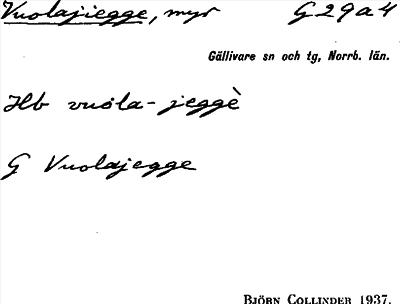 Vuolajiegge, myr G29a4
Gällivare sn och tg, Norrb. län.
Hb vuǒla-jeggè
G Vuolajegge
BJÖRN COLLINDER 1937.